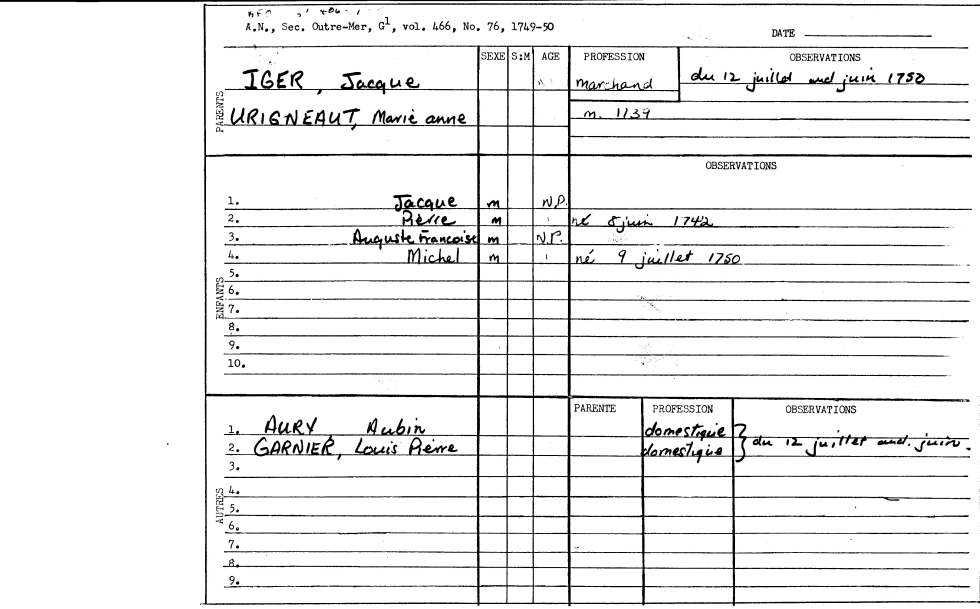 A.N., Sec. Outre-Mer, G¹, vol. 466, No. 76, 1749-50
DATE
SEXE S:M AGE PROFESSION OBSERVATIONS
PARENTS
IGER, Jacque marchand du 12 juillet and juin 1750
URIGNEAUT, Marie anne m. 1739
OBSERVATIONS
ENFANTS
1. Jacque m N.P.
2. Pierre m né 8 juin 1742
3. Auguste Francoise m N.P.
4. Michel m né 9 juillet 1750
5.
6.
7.
8.
9.
10.
PARENTE PROFESSION OBSERVATIONS
AUTRES
1. AURY, Aubin domestique
2. GARNIER, Louis Pierre domestique } du 12 juillet and. juin
3.
4.
5.
6.
7.
8.
9.